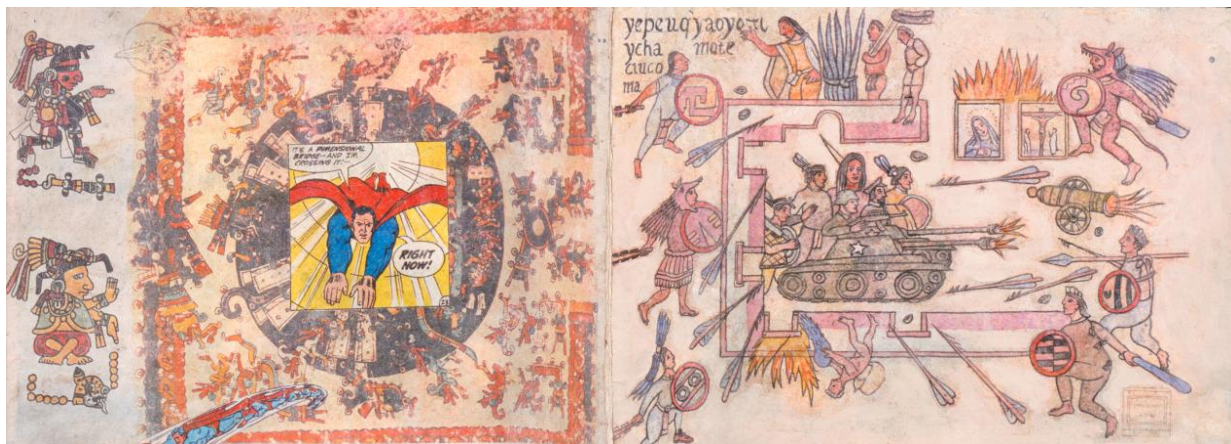 IT'S A DIMENSIONAL
BRIDGE--AND I'M
CROSSING IT!--
RIGHT
NOW!
ycha mote
ciuco
ma